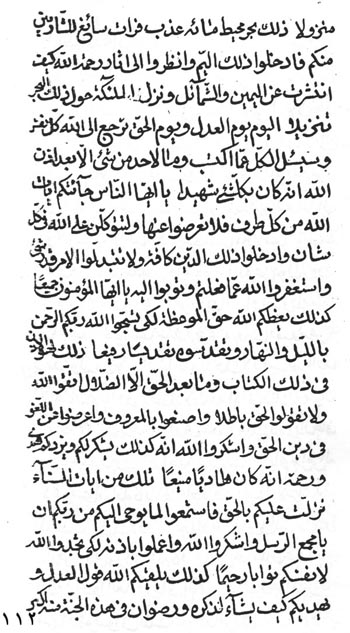 منزولا ذلك بحر محيط مائه عذب فرات سائغ للشاربين
منكم فادخلوا ذلك اليم وانظروا الى اثار رحمة الله كيف
انتشرت عن اليمين والشمائل ونزل الملئكة حول ذلك البحر
تنزيلا اليوم يوم العدل ويوم الحق ترجع الى الله كل نفس
ويسئل الكل عما اكتسب وما لاحد من شئ الا بعد اذن
الله انه كان بكل شئ شهيدا يا ايها الناس جائتكم ايات
الله من كل طرف فلا تعرضوا عنها ولتتوكلن على الله فى كل
شان وادخلوا ذلك الدين كافة ولا تبدلوا الامر
واستغفروا الله عما فعلتم وتوبوا اليه يا ايها المؤمنون جميعا
كذلك يعظكم الله حق الموعظة لكى تسبحوا الله ربكم الرحمن
بالليل والنهار وتقدسوه تقديسا رفيعا ذلك
فى ذلك الكتاب وما بعد الحق الا الضلال اتقوا الله
ولا تقولوا الحق باطلا واصنعوا بالمعروف واعرضوا عن اللغو
فى دين الحق واشكروا الله انه كذلك يشكركم ويزدكم
ورحمة انه كان هاديا منيعا تلك من ايات السماء
نزلت عليكم بالحق فاستمعوا لما يوحى اليكم من ربكم ان
يا مجمع الرسل واشكروا الله واعملوا باذنه لكى تجدوا الله
لانفسكم توابا رحيما كذلك يلقيكم الله قول العدل و
يهديكم كيف يشاء لذكره ورضوان فى هذه الجنة
١١٢